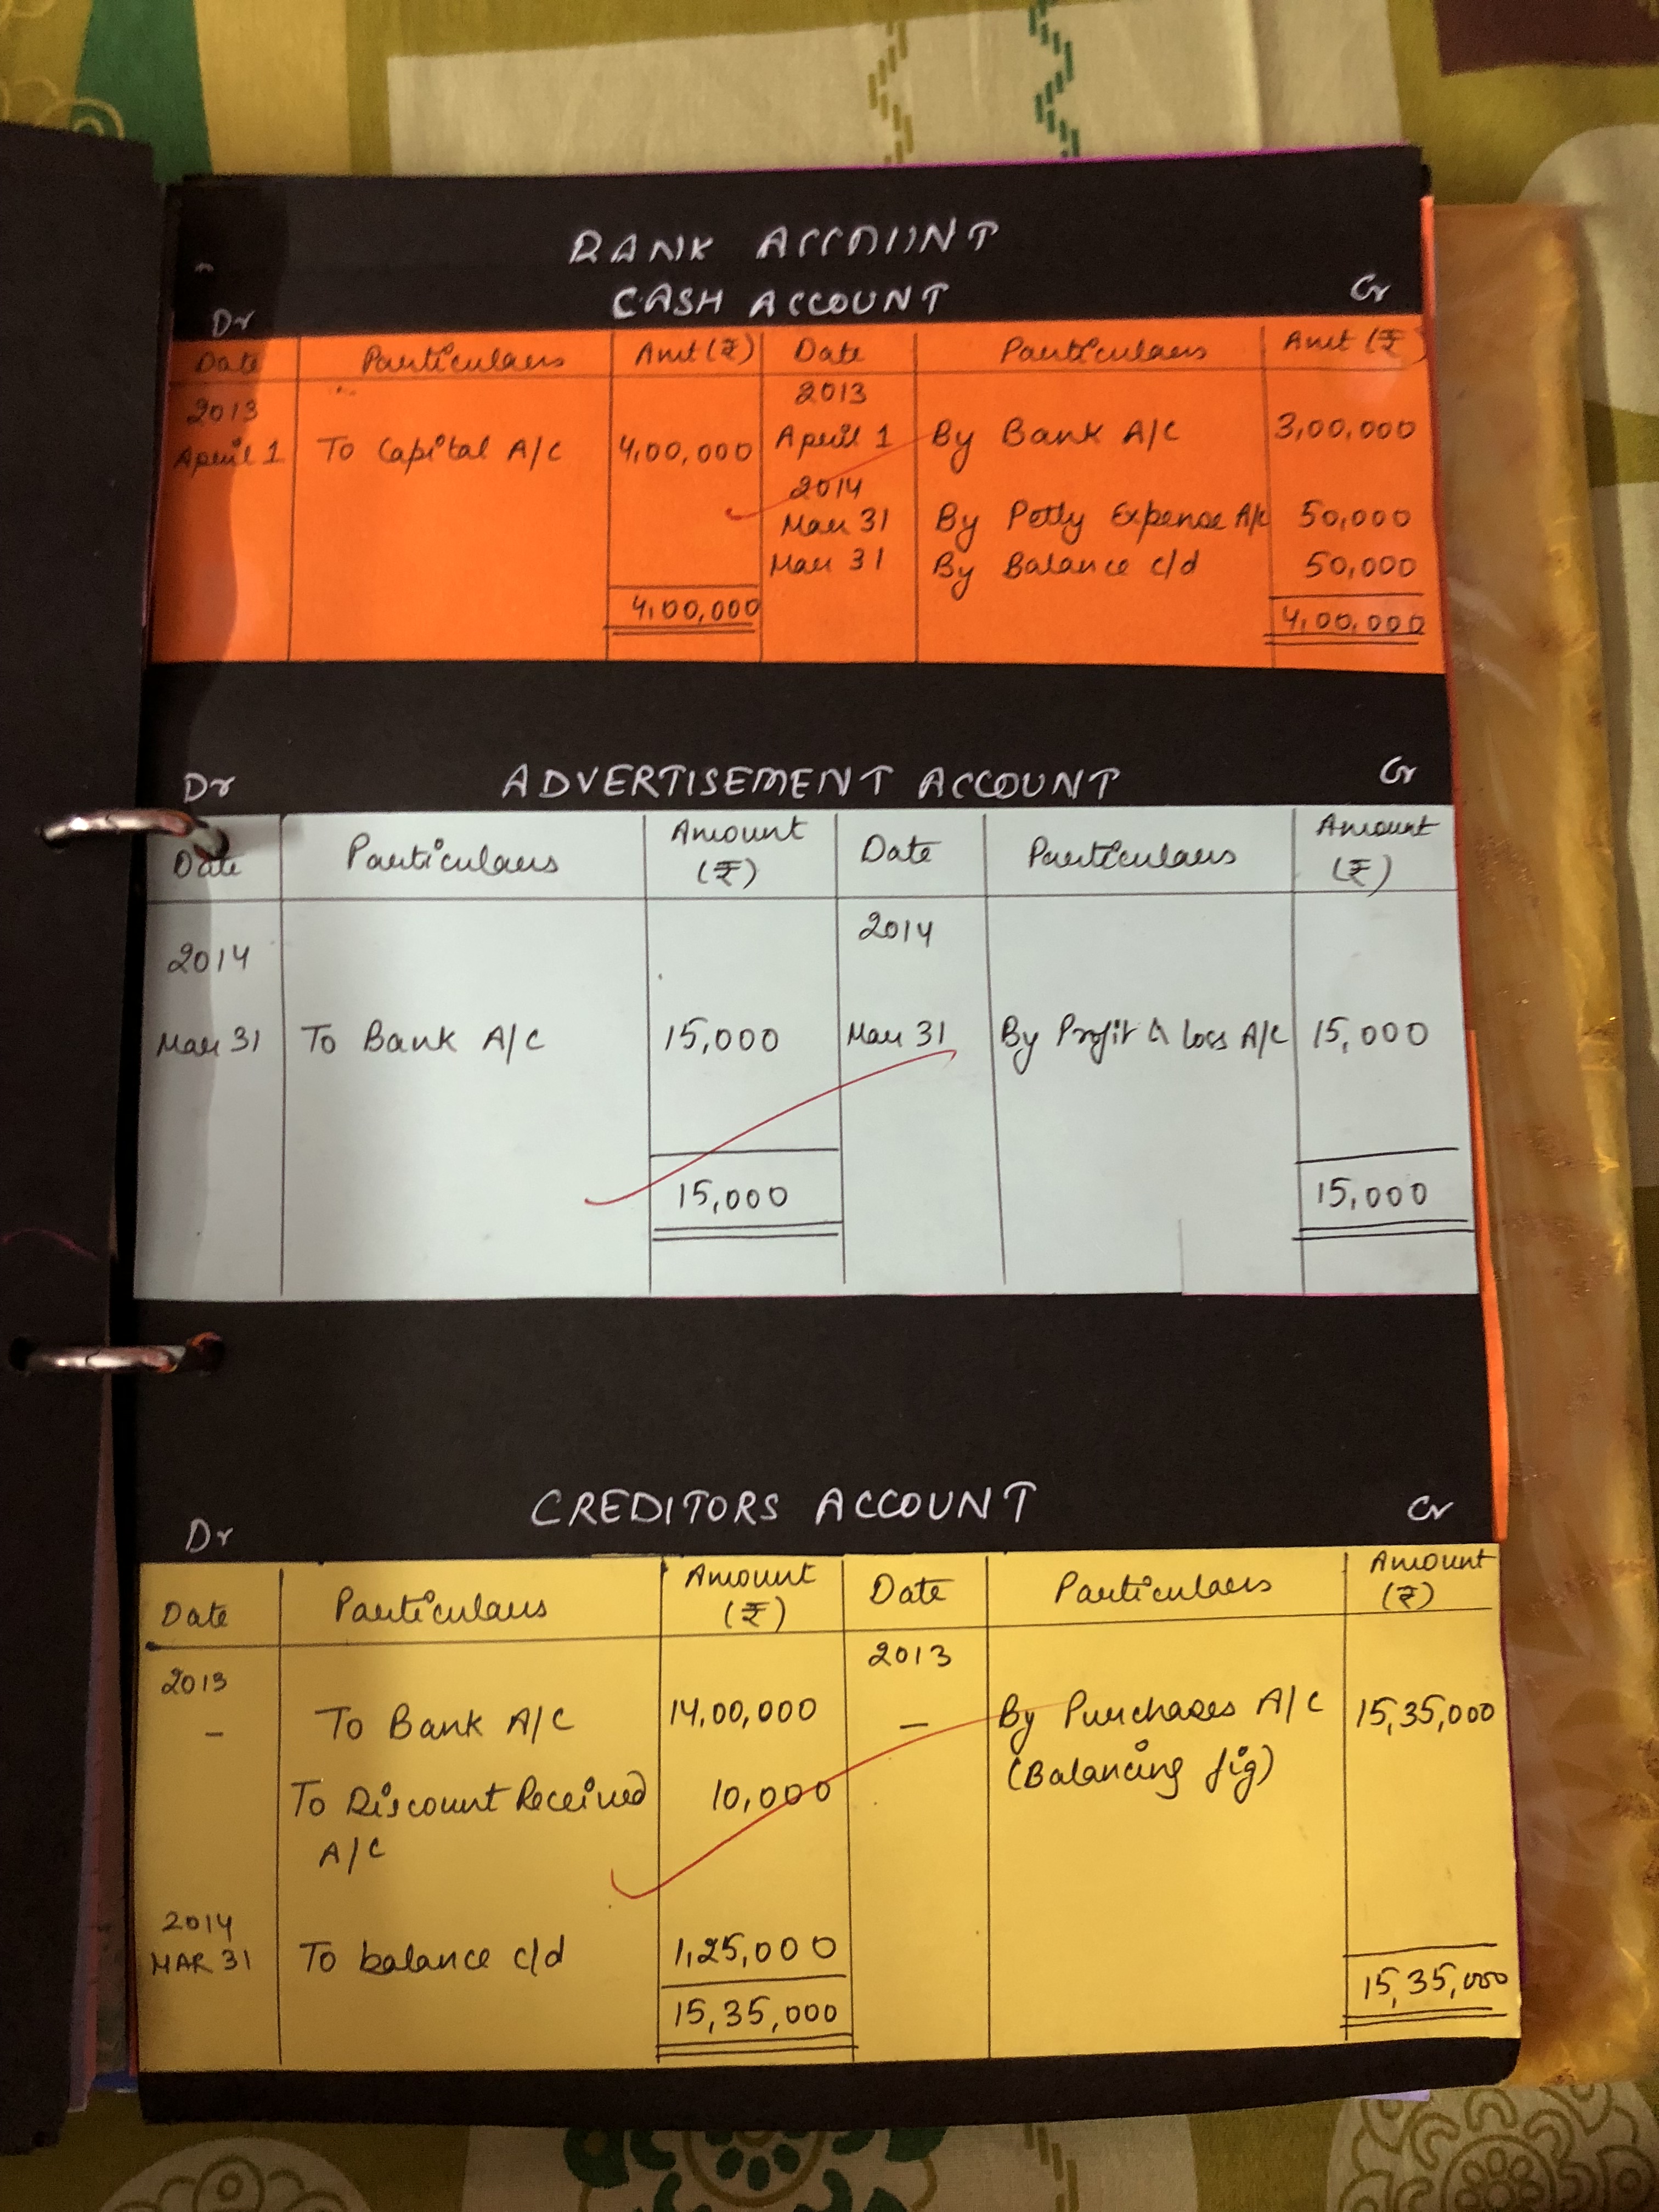 BANK ACCOUNT
CASH ACCOUNT
Dr Cr
Date Particulars Amt (₹) Date Particulars Amt (₹
2013 2013
April 1 To Capital A/C 4,00,000 April 1 By Bank A/C 3,00,000
2014
Mar 31 By Petty Expense A/c 50,000
Mar 31 By Balance c/d 50,000
4,00,000 4,00,000
Dr ADVERTISEMENT ACCOUNT Cr
Date Particulars Amount (₹) Date Particulars Amount (₹)
2014 2014
Mar 31 To Bank A/C 15,000 Mar 31 By Profit & loss A/C 15,000
15,000 15,000
Dr CREDITORS ACCOUNT Cr
Date Particulars Amount (₹) Date Particulars Amount (₹)
2013 2013
– To Bank A/C 14,00,000 – By Purchases A/C 15,35,000
(Balancing fig)
To Discount Received 10,000
A/C
2014
MAR 31 To balance c/d 1,25,000
15,35,000 15,35,000